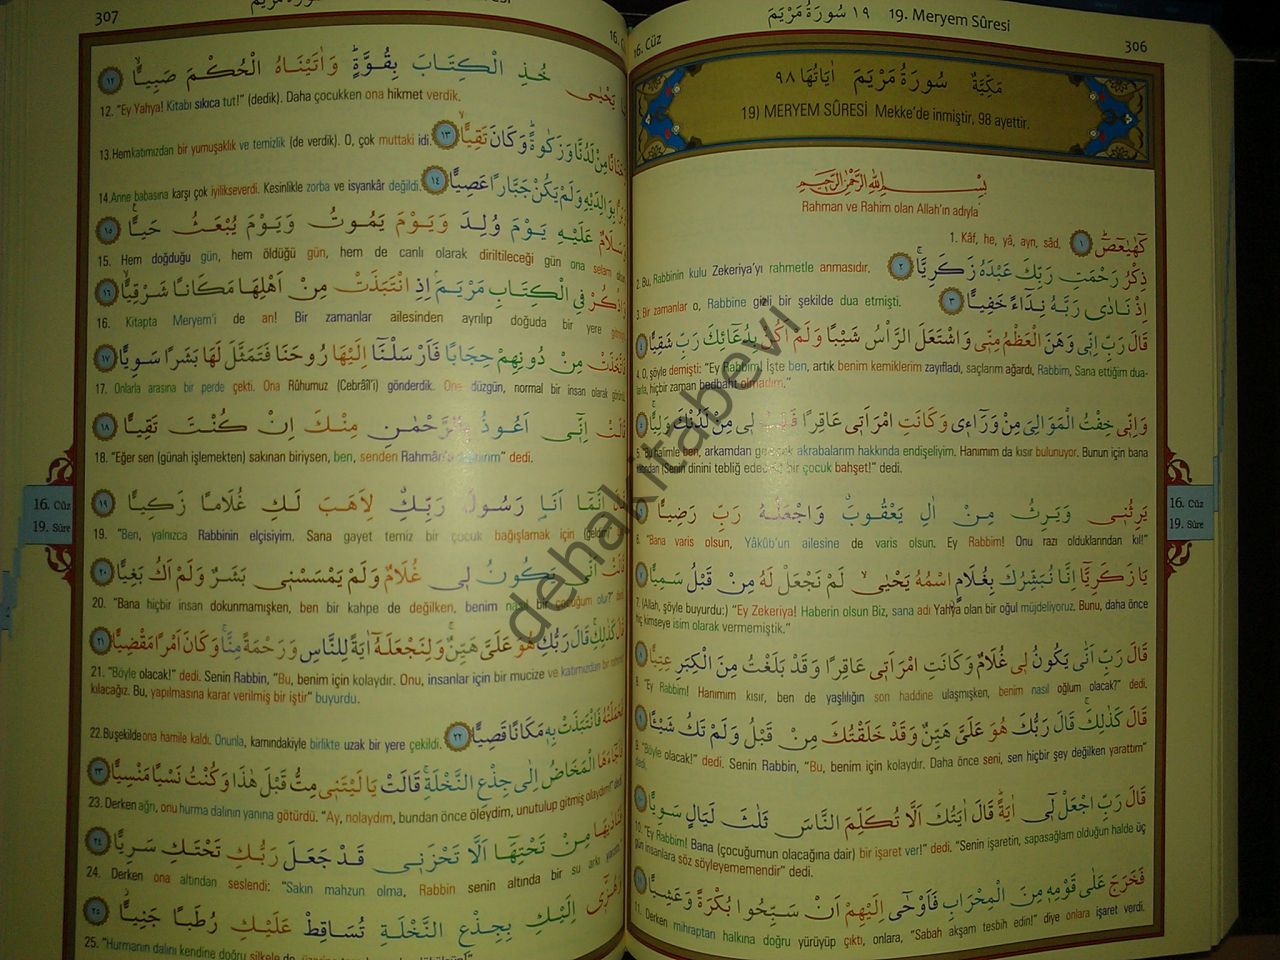 ١٩ سُورَةُ مَرْيَمَ 19. Meryem Sûresi
16. Cüz
306
مَكِّيَّةٌ سُورَةُ مَرْيَمَ اٰيَاتُهَا ٩٨
19) MERYEM SÛRESİ Mekke'de inmiştir, 98 ayettir.
بِسْمِ اللّٰهِ الرَّحْمٰنِ الرَّحِيمِ
Rahman ve Rahim olan Allah'ın adıyla
كٓهٰيٰعٓصٓ ١
1. Kâf, he, yâ, ayn, sâd.
ذِكْرُ رَحْمَتِ رَبِّكَ عَبْدَهُ زَكَرِيَّا ٢
2. Bu, Rabbinin kulu Zekeriya'yı rahmetle anmasıdır.
اِذْ نَادٰى رَبَّهُ نِدَٓاءً خَفِيًّا ٣
3. Bir zamanlar o, Rabbine gizli bir şekilde dua etmişti.
قَالَ رَبِّ اِنّ۪ى وَهَنَ الْعَظْمُ مِنّ۪ى وَاشْتَعَلَ الرَّأْسُ شَيْبًا وَلَمْ اَكُنْ بِدُعَٓائِكَ رَبِّ شَقِيًّا ٤
4. O, şöyle demişti: "Ey Rabbim! İşte ben, artık benim kemiklerim zayıfladı, saçlarım ağardı, Rabbim, Sana ettiğim dua-
larla, hiçbir zaman bedbaht olmadım."
وَاِنّ۪ى خِفْتُ الْمَوَالِىَ مِنْ وَرَٓاء۪ى وَكَانَتِ امْرَاَت۪ى عَاقِرًا فَهَبْ ل۪ى مِنْ لَدُنْكَ وَلِيًّا ٥
5. "Bu halimle ben, arkamdan gelecek akrabalarım hakkında endişeliyim. Hanımım da kısır bulunuyor. Bunun için bana
tarafından (Senin dinini tebliğ edecek) bir çocuk bahşet!" dedi.
يَرِثُن۪ى وَيَرِثُ مِنْ اٰلِ يَعْقُوبَ وَاجْعَلْهُ رَبِّ رَضِيًّا ٦
6. "Bana varis olsun, Yâkûb'un ailesine de varis olsun. Ey Rabbim! Onu razı olduklarından kıl!"
يَا زَكَرِيَّٓا اِنَّا نُبَشِّرُكَ بِغُلَامٍ اسْمُهُ يَحْيٰى لَمْ نَجْعَلْ لَهُ مِنْ قَبْلُ سَمِيًّا ٧
7. (Allah, şöyle buyurdu:) "Ey Zekeriya! Haberin olsun Biz, sana adı Yahya olan bir oğul müjdeliyoruz. Bunu, daha önce
hiç kimseye isim olarak vermemiştik."
قَالَ رَبِّ اَنّٰى يَكُونُ ل۪ى غُلَامٌ وَكَانَتِ امْرَاَت۪ى عَاقِرًا وَقَدْ بَلَغْتُ مِنَ الْكِبَرِ عِتِيًّا ٨
8. "Ey Rabbim! Hanımım kısır, ben de yaşlılığın son haddine ulaşmışken, benim nasıl oğlum olacak?" dedi.
قَالَ كَذٰلِكَ قَالَ رَبُّكَ هُوَ عَلَىَّ هَيِّنٌ وَقَدْ خَلَقْتُكَ مِنْ قَبْلُ وَلَمْ تَكُ شَيْـًٔا ٩
9. "Böyle olacak!" dedi. Senin Rabbin, "Bu, benim için kolaydır. Daha önce seni, sen hiçbir şey değilken yarattım"
dedi.
قَالَ رَبِّ اجْعَلْ ل۪ٓى اٰيَةً قَالَ اٰيَتُكَ اَلَّا تُكَلِّمَ النَّاسَ ثَلٰثَ لَيَالٍ سَوِيًّا ١٠
10. "Ey Rabbim! Bana (çocuğumun olacağına dair) bir işaret ver!" dedi. "Senin işaretin, sapasağlam olduğun halde üç
gün insanlara söz söyleyememendir" dedi.
فَخَرَجَ عَلٰى قَوْمِه۪ مِنَ الْمِحْرَابِ فَاَوْحٰٓى اِلَيْهِمْ اَنْ سَبِّحُوا بُكْرَةً وَعَشِيًّا ١١
11. Derken mihraptan halkına doğru yürüyüp çıktı, onlara, "Sabah akşam tesbih edin!" diye onlara işaret verdi.
16. Cüz
19. Sûre
307
يَا يَحْيٰى خُذِ الْكِتَابَ بِقُوَّةٍ وَاٰتَيْنَاهُ الْحُكْمَ صَبِيًّا ١٢
12. "Ey Yahya! Kitabı sıkıca tut!" (dedik). Daha çocukken ona hikmet verdik.
وَحَنَانًا مِنْ لَدُنَّا وَزَكٰوةً وَكَانَ تَقِيًّا ١٣
13. Hem katımızdan bir yumuşaklık ve temizlik (de verdik). O, çok muttaki idi.
وَبَرًّا بِوَالِدَيْهِ وَلَمْ يَكُنْ جَبَّارًا عَصِيًّا ١٤
14. Anne babasına karşı çok iyilikseverdi. Kesinlikle zorba ve isyankâr değildi.
وَسَلَامٌ عَلَيْهِ يَوْمَ وُلِدَ وَيَوْمَ يَمُوتُ وَيَوْمَ يُبْعَثُ حَيًّا ١٥
15. Hem doğduğu gün, hem öldüğü gün, hem de canlı olarak diriltileceği gün ona selam
وَاذْكُرْ فِى الْكِتَابِ مَرْيَمَ اِذِ انْتَبَذَتْ مِنْ اَهْلِهَا مَكَانًا شَرْقِيًّا ١٦
16. Kitapta Meryem'i de an! Bir zamanlar ailesinden ayrılıp doğuda bir yere
فَاتَّخَذَتْ مِنْ دُونِهِمْ حِجَابًا فَاَرْسَلْنَٓا اِلَيْهَا رُوحَنَا فَتَمَثَّلَ لَهَا بَشَرًا سَوِيًّا ١٧
17. Onlarla arasına bir perde çekti. Ona Rûhumuz (Cebrâîl'i) gönderdik. Ona düzgün, normal bir insan olarak
قَالَتْ اِنّ۪ٓى اَعُوذُ بِالرَّحْمٰنِ مِنْكَ اِنْ كُنْتَ تَقِيًّا ١٨
18. "Eğer sen (günah işlemekten) sakınan biriysen, ben, senden Rahmân'a sığınırım" dedi.
قَالَ اِنَّمَٓا اَنَا۬ رَسُولُ رَبِّكِ لِاَهَبَ لَكِ غُلَامًا زَكِيًّا ١٩
19. "Ben, yalnızca Rabbinin elçisiyim. Sana gayet temiz bir çocuk bağışlamak için (geldim)"
قَالَتْ اَنّٰى يَكُونُ ل۪ى غُلَامٌ وَلَمْ يَمْسَسْن۪ى بَشَرٌ وَلَمْ اَكُ بَغِيًّا ٢٠
20. "Bana hiçbir insan dokunmamışken, ben bir kahpe de değilken, benim nasıl bir çocuğum olur?"
قَالَ كَذٰلِكِ قَالَ رَبُّكِ هُوَ عَلَىَّ هَيِّنٌ وَلِنَجْعَلَهُٓ اٰيَةً لِلنَّاسِ وَرَحْمَةً مِنَّا وَكَانَ اَمْرًا مَقْضِيًّا ٢١
21. "Böyle olacak!" dedi. Senin Rabbin, "Bu, benim için kolaydır. Onu, insanlar için bir mucize ve katımızdan bir
kılacağız. Bu, yapılmasına karar verilmiş bir iştir" buyurdu.
فَحَمَلَتْهُ فَانْتَبَذَتْ بِه۪ مَكَانًا قَصِيًّا ٢٢
22. Bu şekilde ona hamile kaldı. Onunla, karnındakiyle birlikte uzak bir yere çekildi.
فَاَجَٓاءَهَا الْمَخَاضُ اِلٰى جِذْعِ النَّخْلَةِ قَالَتْ يَا لَيْتَن۪ى مِتُّ قَبْلَ هٰذَا وَكُنْتُ نَسْيًا مَنْسِيًّا ٢٣
23. Derken ağrı, onu hurma dalının yanına götürdü. "Ay, nolaydım, bundan önce öleydim, unutulup gitmiş olaydım!"
فَنَادٰيهَا مِنْ تَحْتِهَٓا اَلَّا تَحْزَن۪ى قَدْ جَعَلَ رَبُّكِ تَحْتَكِ سَرِيًّا ٢٤
24. Derken ona altından seslendi: "Sakın mahzun olma, Rabbin senin altında bir su arkı
وَهُزّ۪ٓى اِلَيْكِ بِجِذْعِ النَّخْلَةِ تُسَاقِطْ عَلَيْكِ رُطَبًا جَنِيًّا ٢٥
25. "Hurmanın dalını kendine doğru silkele de,
16. Cüz
19. Sûre
dehakitabevi